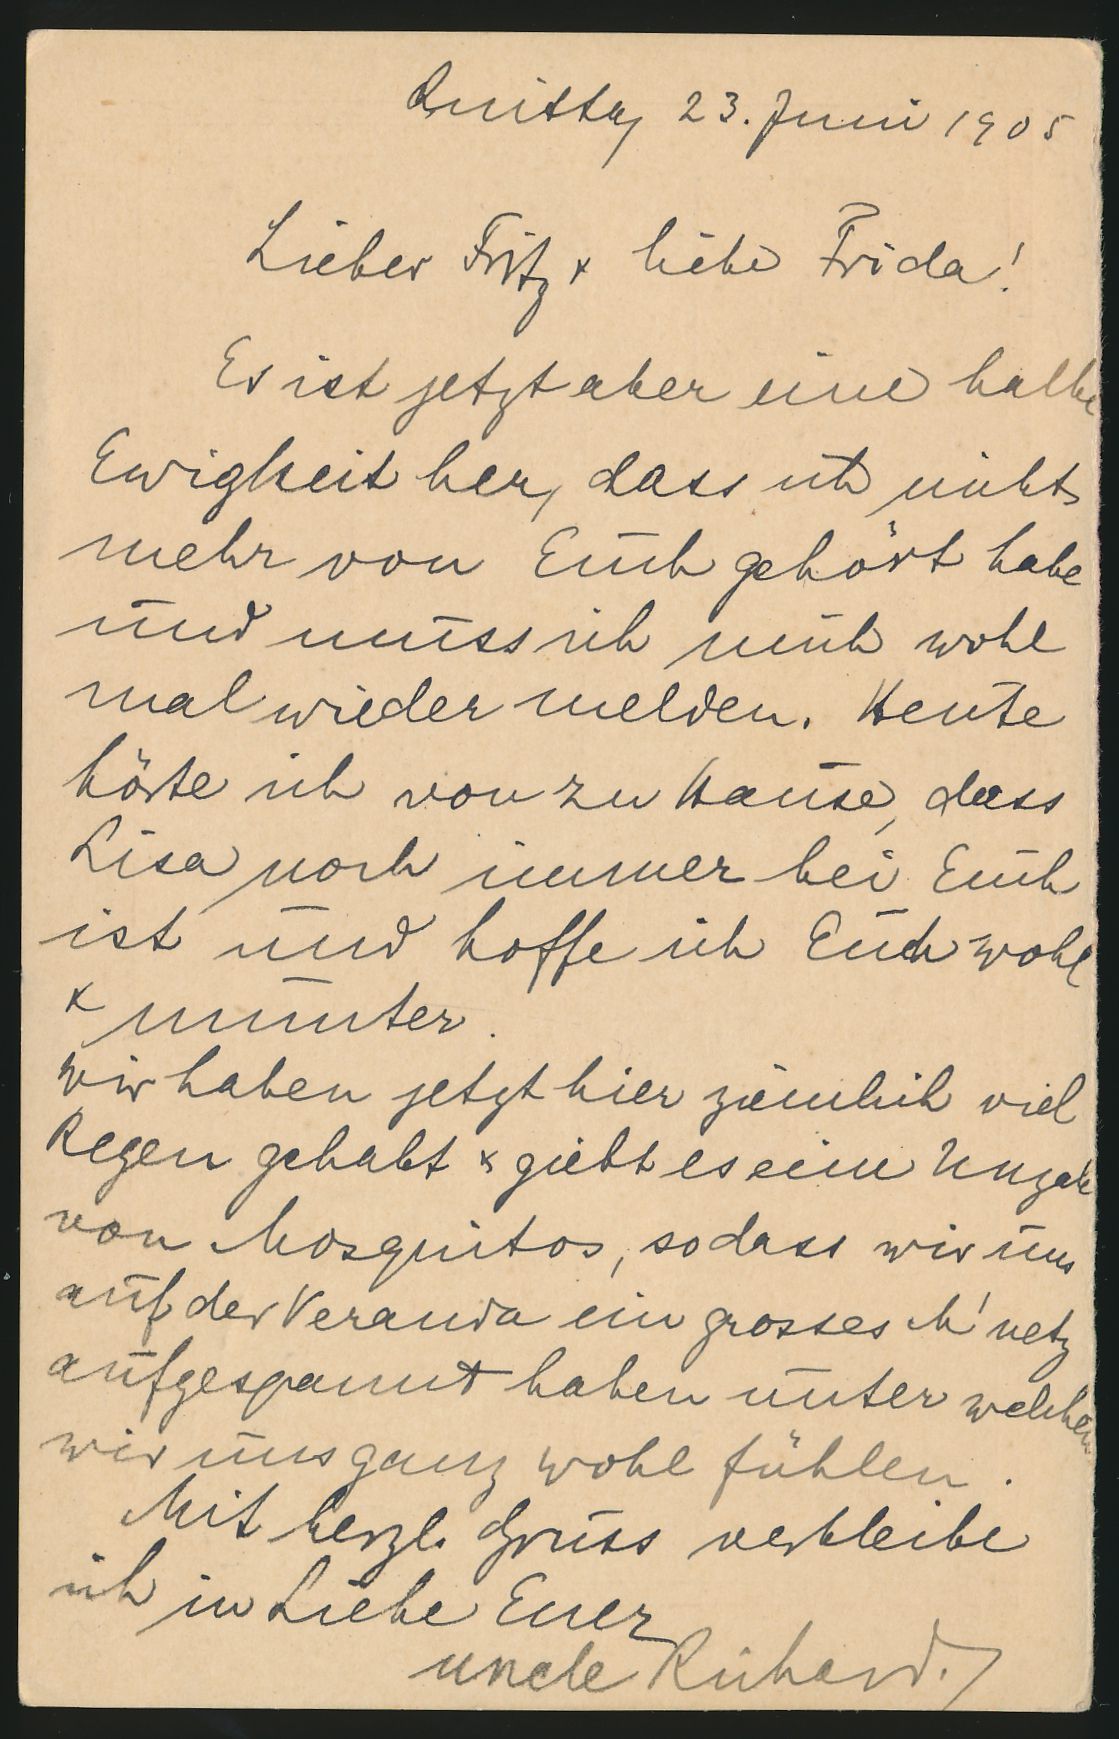 Quitta, 23. Juni 1905
Lieber Fritz & liebe Frida!
Es ist jetzt aber eine halbe
Ewigkeit her, dass ich nichts
mehr von Euch gehört habe
und muss ich mich wohl
mal wieder melden. Heute
hörte ich von zu Hause, dass
Lisa noch immer bei Euch
ist und hoffe ich Euch wohl
& munter.
Wir haben jetzt hier ziemlich viel
Regen gehabt & giebt es eine Unzahl
von Mosquitos, sodass wir uns
auf der Veranda ein grosses M'netz
aufgespannt haben unter welchem
wir uns ganz wohl fühlen.
Mit herzl. Gruss verbleibe
ich in Liebe Euer
uncle Richard.